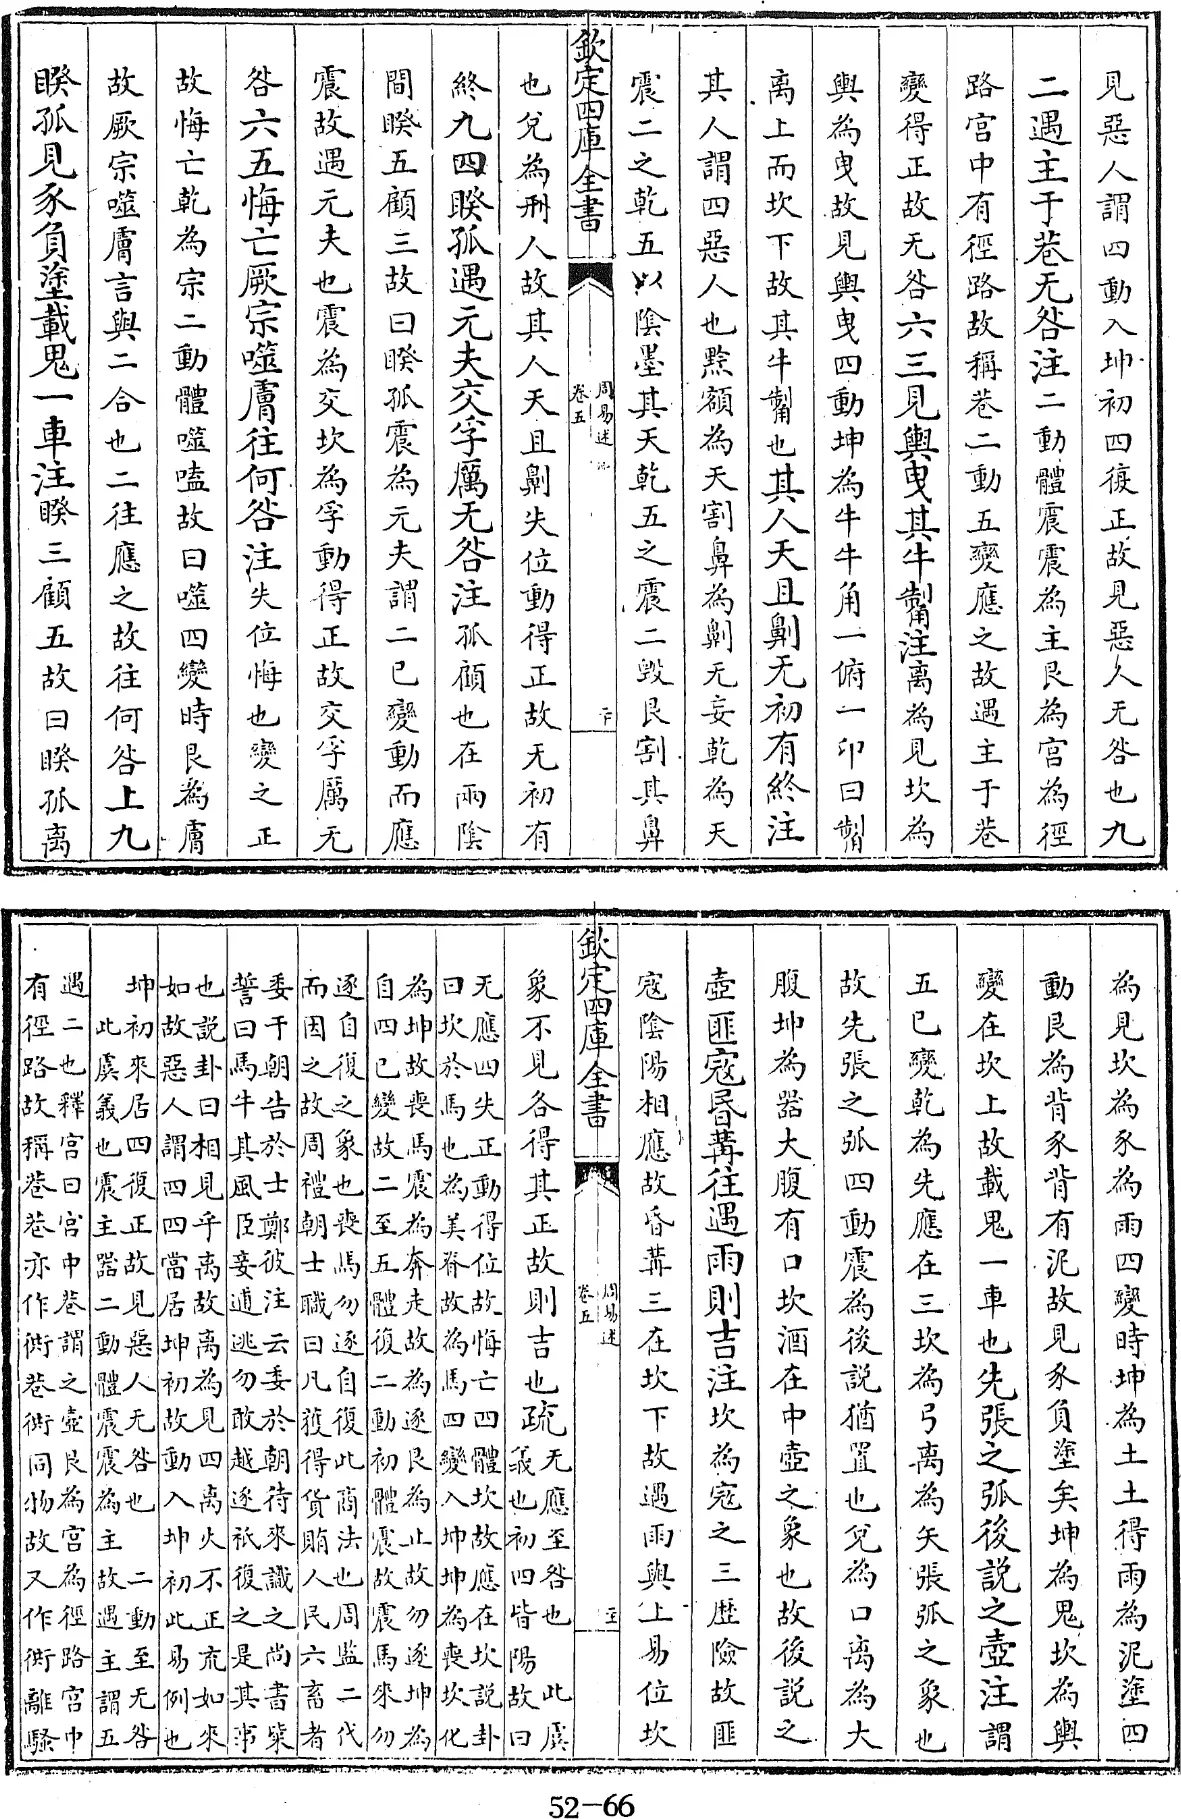 見惡人謂四動入坤初四復正故見惡人无咎也九
二遇主于巷无咎注二動體震震為主艮為宮為徑
路宮中有徑路故稱巷二動五變應之故遇主于巷
變得正故无咎六三見輿曳其牛觢注離為見坎為
輿為曳故見輿曳四動坤為牛牛角一俯一卬曰觢
離上而坎下故其牛觢也其人天且劓无初有終注
其人謂四惡人也黥額為天割鼻為劓无妄乾為天
震二之乾五以陰墨其天乾五之震二毀艮割其鼻
欽定四庫全書
周易述
卷五
也兌為刑人故其人天且劓失位動得正故无初有
終九四睽孤遇元夫交孚厲无咎注孤顧也在兩陰
間睽五顧三故曰睽孤震為元夫謂二已變動而應
震故遇元夫也震為交坎為孚動得正故交孚厲无
咎六五悔亡厥宗噬膚往何咎注失位悔也變之正
故悔亡乾為宗二動體噬嗑故曰噬四變時艮為膚
故厥宗噬膚言與二合也二往應之故往何咎上九
睽孤見豕負塗載鬼一車注睽三顧五故曰睽孤離
為見坎為豕為雨四變時坤為土土得雨為泥塗四
動艮為背豕背有泥故見豕負塗矣坤為鬼坎為輿
變在坎上故載鬼一車也先張之弧後說之壺注謂
五已變乾為先應在三坎為弓離為矢張弧之象也
故先張之弧四動震為後說猶置也兌為口離為大
腹坤為器大腹有口坎酒在中壺之象也故後說之
壺匪寇昏冓往遇雨則吉注坎為寇之三歷險故匪
寇陰陽相應故昏冓三在坎下故遇雨與上易位坎
欽定四庫全書
周易述
卷五
象不見各得其正故則吉也疏无應至咎也 此虞
義也初四皆陽故曰
无應四失正動得位故悔亡四體坎故應在坎說卦
曰坎於馬也為美脊故為馬四變入坤坤為喪坎化
為坤故喪馬震為奔走故為逐艮為止故勿逐坤為
自四已變故二至五體復二動初體震故震馬來勿
逐自復之象也喪馬勿逐自復此商法也周監二代
而因之故周禮朝士職曰凡獲得貨賄人民六畜者
委于朝告於士鄭彼注云委於朝待來識之尚書粊
誓曰馬牛其風臣妾逋逃勿敢越逐祇復之是其事
也說卦曰相見乎離故離為見四離火不正㐬如來
如故惡人謂四四當居坤初故動入坤初此易例也
坤初來居四復正故見惡人无咎也 二動至无咎
此虞義也震主器二動體震震為主故遇主謂五
遇二也釋宮曰宮中巷謂之壼艮為宮為徑路宮中
有徑路故稱巷巷亦作衖巷衖同物故又作衖離騷
52-66